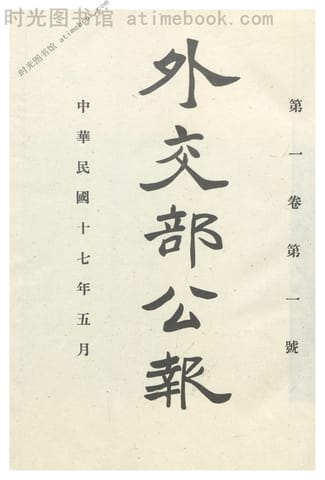 时光图书馆 - atimebook.com
时光图书馆 atimebook.com
第一卷第一號
外交部公報
中華民國十七年五月